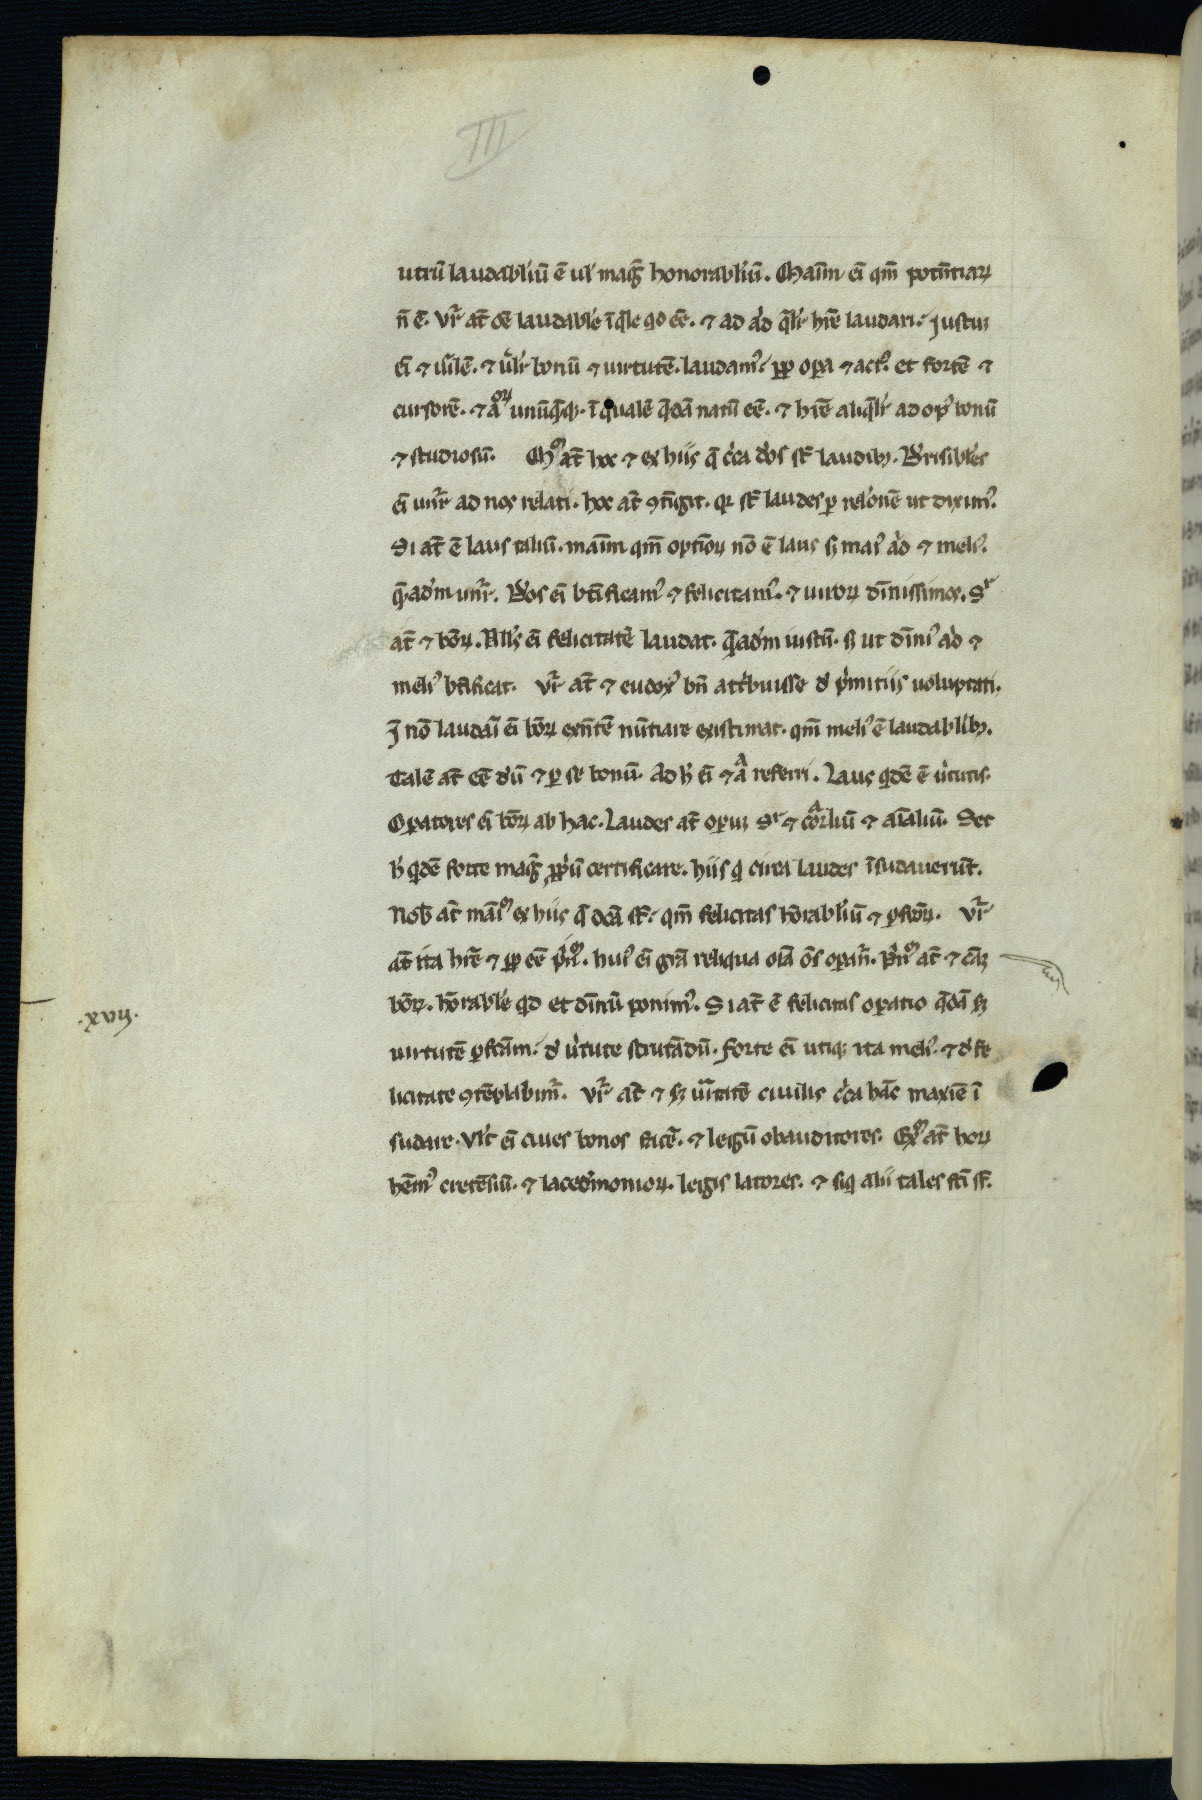 III
utrū laudabliū ē ul' maḡ honorabliū. Manim ei qm̄ potn̄tiaꝝ
n̄ ē. vr̄ at̄ oē laudable ī q̄le qd eē. ⁊ ad ad q̄lr hr̄e laudari. Justuȝ
ei ⁊ uirilē. ⁊ ulr bonū ⁊ uirtutē. laudam⁹. ꝓp opa ⁊ act⁹. et fortē ⁊
cursorē. ⁊ aoꝝ unūq̄qȝ. ī qualē q̄dā natū eē. ⁊ hr̄e aliq̄lr ad op⁹ bonū
⁊ studiosū. M at̄ hoc ⁊ ex hiis q̄ cca dos st̄ laudibȝ. Drisibles
ei unr̄ ad nos relati. hoc at̄ ꝯtīgit. qr st̄ laudes p relonē ut dixim⁹.
Si at̄ ē laus taliū. manim qm̄ optioꝝ nō ē laus sȝ mai⁹ ad ⁊ meli⁹.
q̄adm unr̄. Dos ei bt̄ificam⁹ ⁊ felicitam⁹. ⁊ uiroꝝ dīnissimos. Sr
at̄ ⁊ boꝝ. Null⁹ ei felicitatē laudat. q̄adm iustū. sȝ ut dīni⁹ ad ⁊
meli⁹ bt̄ificat. vr̄ at̄ ⁊ eudox⁹ bn̄ attbuisse d pmitiis uoluptati.
nō laudari ei boꝝ exn̄tē nūtiare existimat. qm̄ meli⁹ ē laudablibȝ.
Talē at̄ eē dm̄ ⁊ p se bonū. Ad h ei ⁊ a referri. Laus qdē ē ututis.
Opatores ei boꝝ ab hac. Laudes at̄ opuȝ Sr ⁊ corpliū ⁊ aīaliū. Set
h qdē forte maḡ ꝓpū certificare. hiis q circa laudes īsudauerūt.
Nob at̄ mai ex hiis q̄ dcā st̄. qm̄ felicitas honrabliū ⁊ pfcoꝝ. vr̄
at̄ ita hr̄e ⁊ ꝓp eē pn. hui⁹ ei grā reliqua oīa oēs opan̄. pn at̄ ⁊ cām
boꝝ. honrable qd et dīnū ponim⁹. Si at̄ ē felicitas opatio q̄dā sȝ
uirtutē pfcām. d utute scrutādū. Forte ei utiqȝ ita meli⁹. ⁊ d fe
licitate ꝯtēplabim̄. vr̄ at̄ ⁊ sȝ uitatē ciuilis cca hāc maxīe ī
sudare. Vlt ei ciues bonos facē. ⁊ legū obauditores. Ex at̄ hoꝝ
hēm⁹ cretēsiū. ⁊ lacedmonioꝝ. legis latores. ⁊ siq alii tales fcī st̄.
.xvij.